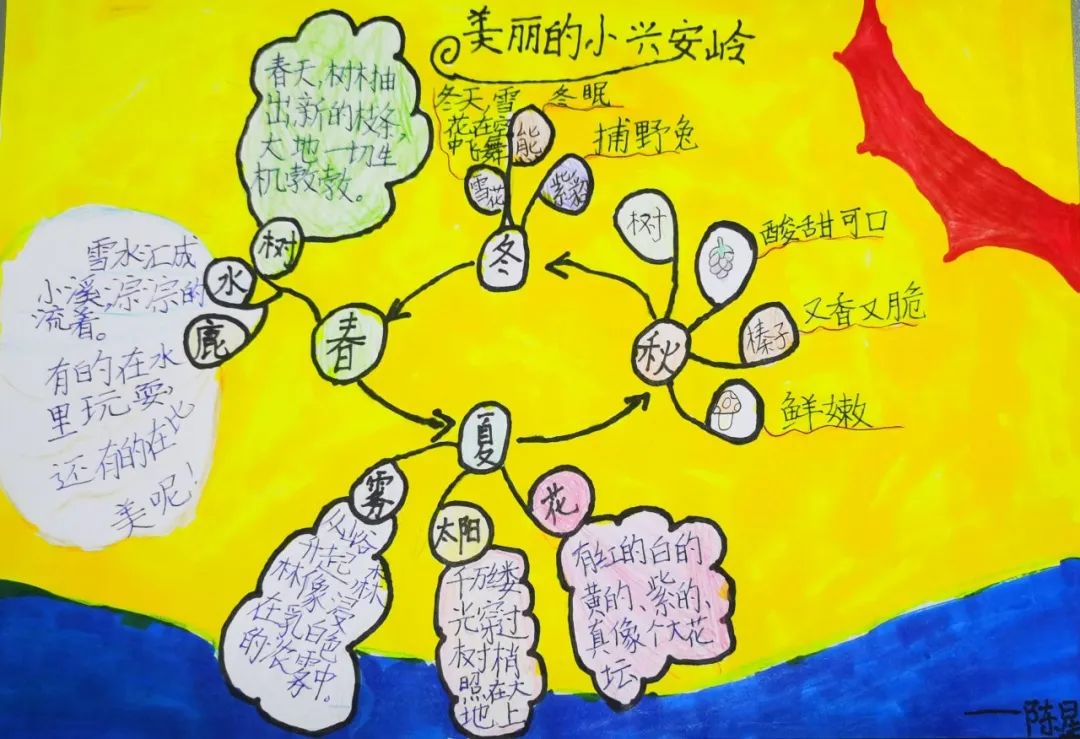 美丽的小兴安岭
春天,树林抽
出,新的枝条,
大地一切生
机敎敎。
树
水
鹿
雪水汇成
小溪,淙淙的
流着。
有的在水
里玩耍,
还有的在比
美呢!
春
夏
雾
从山谷
升起,森
林像浸
在乳白色
的浓雾中。
太阳
千万缕
光穿过
树梢
照在大
地上
花
有红的白的
黄的、紫的、
真像个大花
坛
秋
树
酸甜可口
榛子
又香又脆
鲜嫩
冬
雪花
冬天,雪
花在空
中飞舞
能
冬眠
紫貂
捕野兔